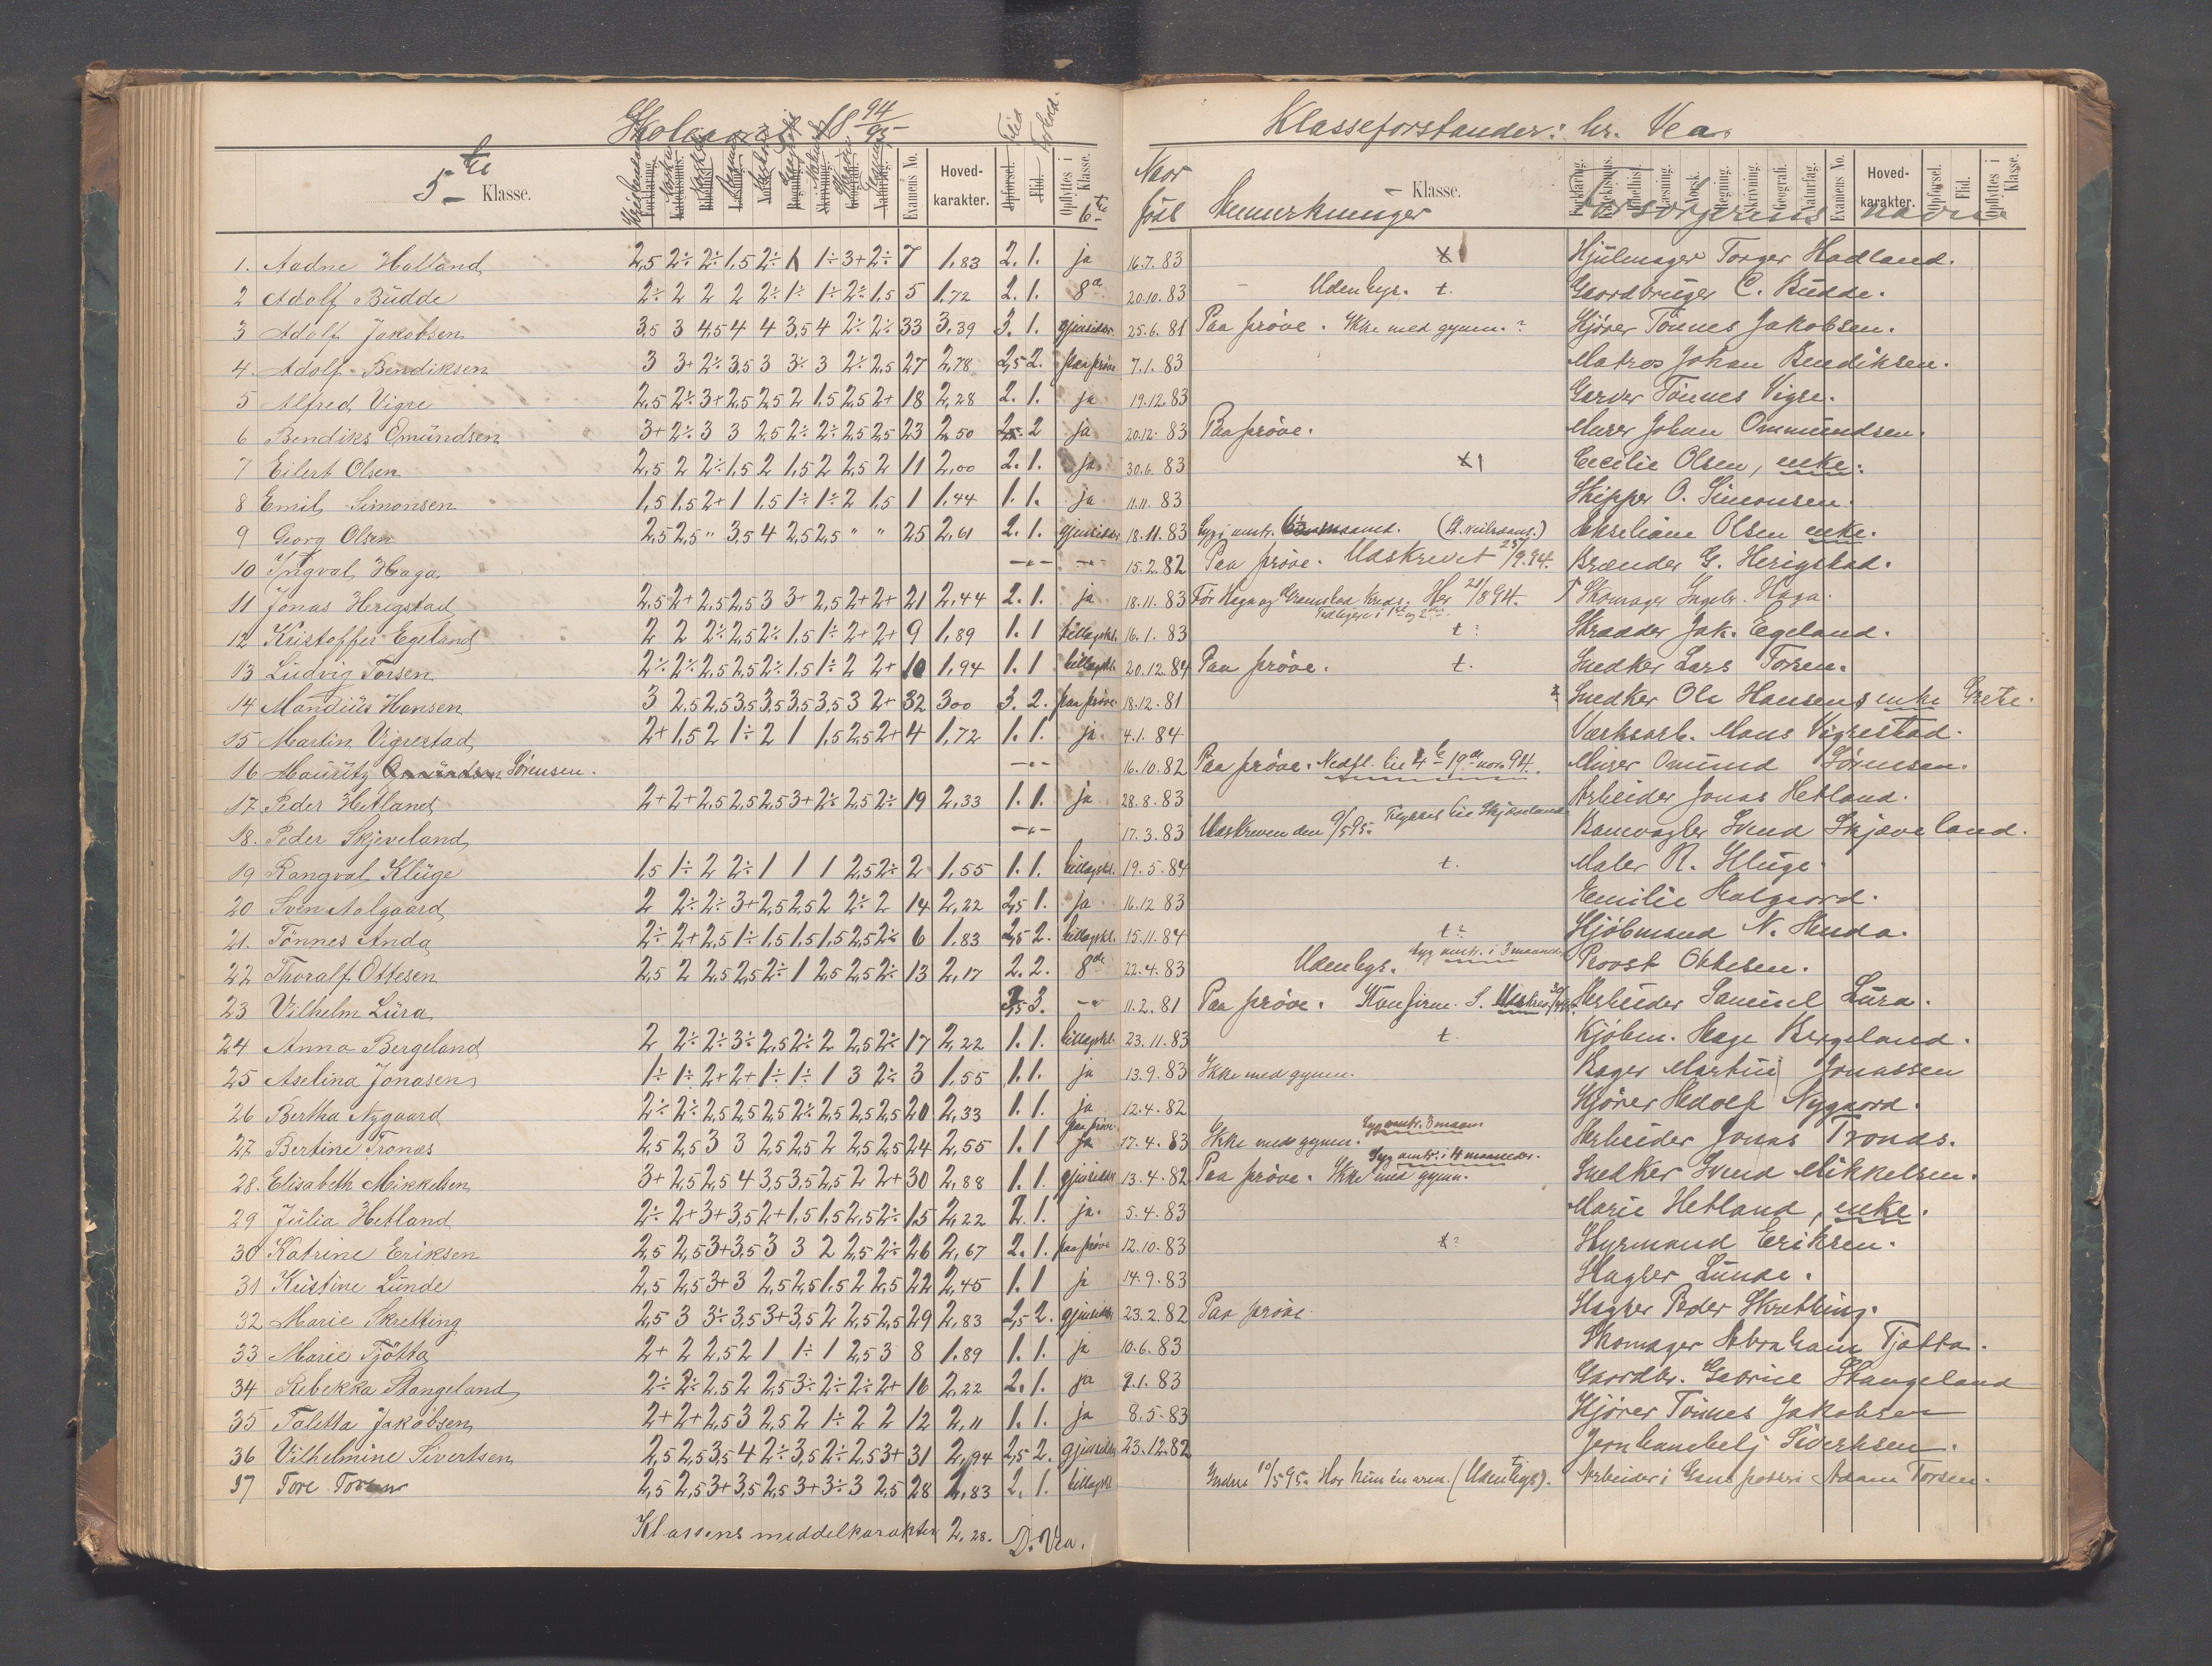 Skoleaaret 18 94/95 Flid Forhold. Klasseforstander: hr. Vea.
5te Klasse. Examens No. Hoved-karakter. Opførsel. Flid. Opflyttes i Klasse. 6te Naar född Anmerkninger Klasse. Forsørgerens navn Forklaring. Katekismus. Bibelhist. Læsning. Norsk. Regning. Skrivning. Geografi. Naturfag. Examens No. Hoved-karakter. Opførsel. Flid. Opflyttes i Klasse.
1. Aadne Hatland 2,5 2÷ 2÷ 1,5 2÷ 1 1÷ 3+ 2÷ 7 1,83 2. 1. ja 16.7.83 x1 Hjulmager Torger Hadland.
2 Adolf Budde 2÷ 2 2 2 2÷ 1÷ 1÷ 2÷ 1,5 5 1,72 2. 1. 8a 20.10.83 Udenbys. t. Gaardbruger C. Budde.
3 Adolf Jakobsen 3,5 3 4,5 4 4 3,5 4 2÷ 2÷ 33 3,39 3. 1. gjensidder 25.6.81 Paa prøve. Ikke med gymn.? Kjører Tönnes Jakobsen.
4. Adolf Bendiksen 3 3+ 2÷ 3,5 3 3÷ 3 2÷ 2,5 27 2,78 2,5 2. paa prøve 7.1.83 Matros Johan Bendiksen.
5 Alfred Vigre 2,5 2÷ 3+ 2,5 2,5 2 1,5 2,5 2+ 18 2,28 2. 1. ja 19.12.83 Garver Tönnes Vigre.
6 Bendiks Omundsen 3+ 2÷ 3 3 2,5 2÷ 2÷ 2,5 2,5 23 2,50 2,5 2 ja 20.12.83 Paa prøve. Murer Johan Ommundsen.
7 Eilert Olsen 2,5 2 2÷ 1,5 2 1,5 2 2,5 2 11 2,00 2. 1. ja 30.6.83 x1 Cecilie Olsen, enke.
8 Emil Simonsen 1,5 1,5 2+ 1 1,5 1÷ 1÷ 2 1,5 1 1,44 1. 1. ja 11.11.83 Skipper O. Simonsen.
9 Georg Olsen 2,5 2,5 " 3,5 4 2,5 2,5 " " 25 2,61 2. 1. gjensidder 18.11.83 Olsen enke.
10 Ingval Haga —"— —"— 15.2.82 Paa prøve. Udskrevet 25/9.94. Brænder G. Herigstad.
11 Jonas Herigstad 2,5 2+ 2,5 2,5 3 3+ 2,5 2+ 2+ 21 2,44 2. 1. ja 18.11.83 Her 21/8 94. Skomager Ingebr. Haga.
12 Kristoffer Egeland 2 2 2÷ 2,5 2÷ 1,5 1÷ 2+ 2+ 9 1,89 1. 1 tillægskl. 16.1.83 t? Skradder Jak. Egeland.
13 Ludvig Torsen 2÷ 2÷ 2,5 2,5 2÷ 1,5 1÷ 2 2+ 10 1,94 1. 1 tillægskl. 20.12.84 Paa prøve. t. Snedker Lars Torsen.
14 Mandius Hansen 3 2,5 2,5 3,5 3,5 3,5 3,5 3 2+ 32 3,00 3. 2. paa prøve 18.12.81 Snedker Ole Hansens enke Grete.
15 Martin Vigrestad 2+ 1,5 2 1÷ 2 1 1,5 2,5 2+ 4 1,72 1. 1. ja 4.1.84 Værksarb. Maus Vigrestad.
16 Mauritz Omundsen Sörensen. —"— 16.10.82 Paa prøve. Nedfl. til 4de 19de nov. 94. Murer Omund Sörensen.
17. Peder Hetland 2+ 2+ 2,5 2,5 2,5 3+ 2÷ 2,5 2÷ 19 2,33 1. 1. ja 28.8.83 Arbeider Jonas Hetland.
18. Peder Skjeveland —"— 17.3.83 Udskreven den 9/5 95. Flyttet til Skjæveland Banevagter Svend Skjæveland.
19 Rangval Kluge 1,5 1÷ 2 2÷ 1 1 1 2,5 2÷ 2 1,55 1. 1. tillægskl. 19.5.84 t. Maler R. Kluge.
20 Sven Aalgaard 2 2÷ 2÷ 3+ 2,5 2,5 2 2÷ 2 14 2,22 2,5 1. ja 16.12 83 Emilie Aalgaard.
21. Tönnes Anda 2÷ 2+ 2,5 1÷ 1,5 1,5 1,5 2,5 2÷ 6 1,83 2,5 2. tillægskl. 15.11.84 t? Kjöbmand N. Anda.
22 Thoralf Ottesen 2,5 2 2,5 2,5 2÷ 1 2,5 2,5 2÷ 13 2,17 2. 2. 8de 22.4.83 Udenbys. Syg omtr. i 3 maaned. Provst Ottesen.
23 Vilhelm Lura 3,5 3. —"— 11.2.81 Paa prøve. Konfirm. Arbeider Samuel Lura.
24 Anna Bergeland 2 2÷ 2÷ 3÷ 2,5 2÷ 2 2,5 2÷ 17 2,22 1. 1. tillægskl. 23.11.83 t. Kjöbm. Aage Bergeland.
25 Aselina Jonasen 1÷ 1÷ 2+ 2+ 1÷ 1÷ 1 3 2÷ 3 1,55 1. 1. ja 13.9.83 Ikke med gymn. Bager Martin Jonassen
26 Bertha Nygaard 2÷ 2÷ 2,5 2,5 2,5 2÷ 2,5 2,5 2,5 20 2,33 1. 1. ja 12.4.82 Kjører Adolf Nygaard.
27 Bertine Tronas 2,5 2,5 3 3 2,5 2,5 2 2,5 2,5 24 2,55 1. 1 paa prøve ja 17.4.83 Ikke med gymn. Syg omtr. 3 maan. Arbeider Jonas Tronas.
28. Elisabeth Mikkelsen 3+ 2,5 2,5 4 3,5 3,5 2,5 2 2+ 30 2,88 1. 1. gjensidder 13.4.82 Paa prøve. Ikke med gymn. Syg omtr. i 4 maaneder. Snedker Svend Mikkelsen.
29 Julia Hetland 2÷ 2+ 3+ 3,5 2+ 1,5 1,5 2,5 2÷ 15 2,22 2. 1. ja. 5.4.83 Marie Hetland, enke.
30 Katrine Eriksen 2,5 2,5 3+ 3,5 3 3 2 2,5 2÷ 26 2,67 2. 1. paa prøve 12.10.83 t? Styrmand Eriksen.
31 Kristine Lunde 2,5 2,5 3+ 3 2,5 2,5 1,5 2 2,5 22 2,45 1. 1 ja 14.9.83 Slagter Lunde.
32 Marie Skretting 2,5 3 3÷ 3,5 3+ 3,5 2 2,5 2,5 29 2,83 2,5 2. gjensidder 23.2.82 Paa prøve. Slagter Peder Skretting.
33 Marie Tjötta 2+ 2 2,5 2 1 1÷ 1 2,5 3 8 1.89 1. 1. ja 10.6.83 Skomager Abraham Tjøtta.
34 Rebekka Stangeland 2÷ 2÷ 2,5 2 2,5 3÷ 2÷ 2÷ 2+ 16 2,22 2. 1. ja 9.1.83 Gaardbr. Gabriel Stangeland
35 Taletta Jakobsen 2+ 2+ 2,5 3 2,5 2 1÷ 2 2 12 2,11 1. 1. ja 8.5.83 Kjører Tönnes Jakobsen
36 Vilhelmine Sivertsen 2,5 2,5 3,5 4 2÷ 3,5 2÷ 2,5 3+ 31 2,94 2,5 2. gjensidder 23.12.82 Sivertsen.
37 Tore Torsen 2,5 2,5 3+ 3,5 2,5 3+ 3÷ 3 2,5 28 2,83 2. 1. tillægskl. 10/5 95. Har kun én arm. (Udenbys). Arbeider i Adam Torsen.
Klassens middelkarakter 2,28. D. Vea.